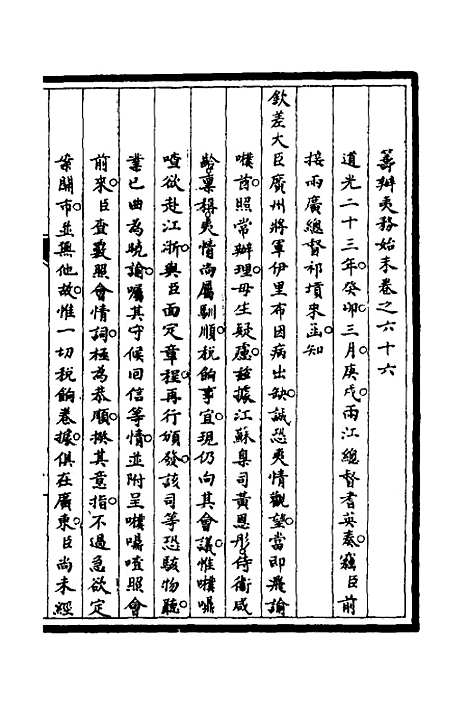 籌辦夷務始末卷之六十六
道光二十三年癸卯三月庚戌兩江總督耆英奏竊臣前
接兩廣總督祁𡎴來函知
欽差大臣廣州將軍伊里布因病出缺誠恐夷情觀望當即飛諭
㗶首照常辦理毋生疑慮茲據江蘇臬司黃恩彤侍衛咸
齡稟稱夷情尚屬馴順稅餉事宜現仍向其會議惟㗶囑
喳欲赴江浙與臣面定章程再行頒發該司等恐駭物聽
業已曲為曉諭囑其守候回信等情並附呈㗶囑喳照會
前來臣查覈照會情詞極為恭順揆其意指不過急欲定
案開市並無他故惟一切稅餉卷據俱在廣東臣尚未經